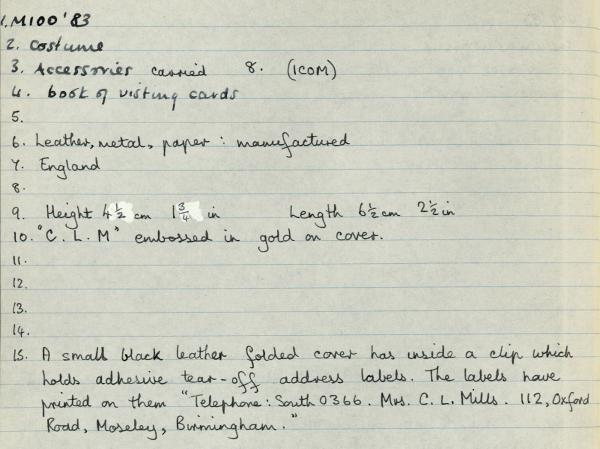 1. M100 '83
2. Costume
3. Accessories carried 8. (ICOM)
4. book of visiting cards
5.
6. Leather, metal, paper : manufactured
7. England
8.
9. Height 4 1/2 cm 1 3/4 in Length 6 1/2 cm 2 1/2 in
10. "C. L. M" embossed in gold on cover.
11.
12.
13.
14.
15. A small black leather folded cover has inside a clip which
holds adhesive tear-off address labels. The labels have
printed on them "Telephone: South 0366. Mrs. C. L. Mills. 112, Oxford
Road, Moseley, Birmingham."